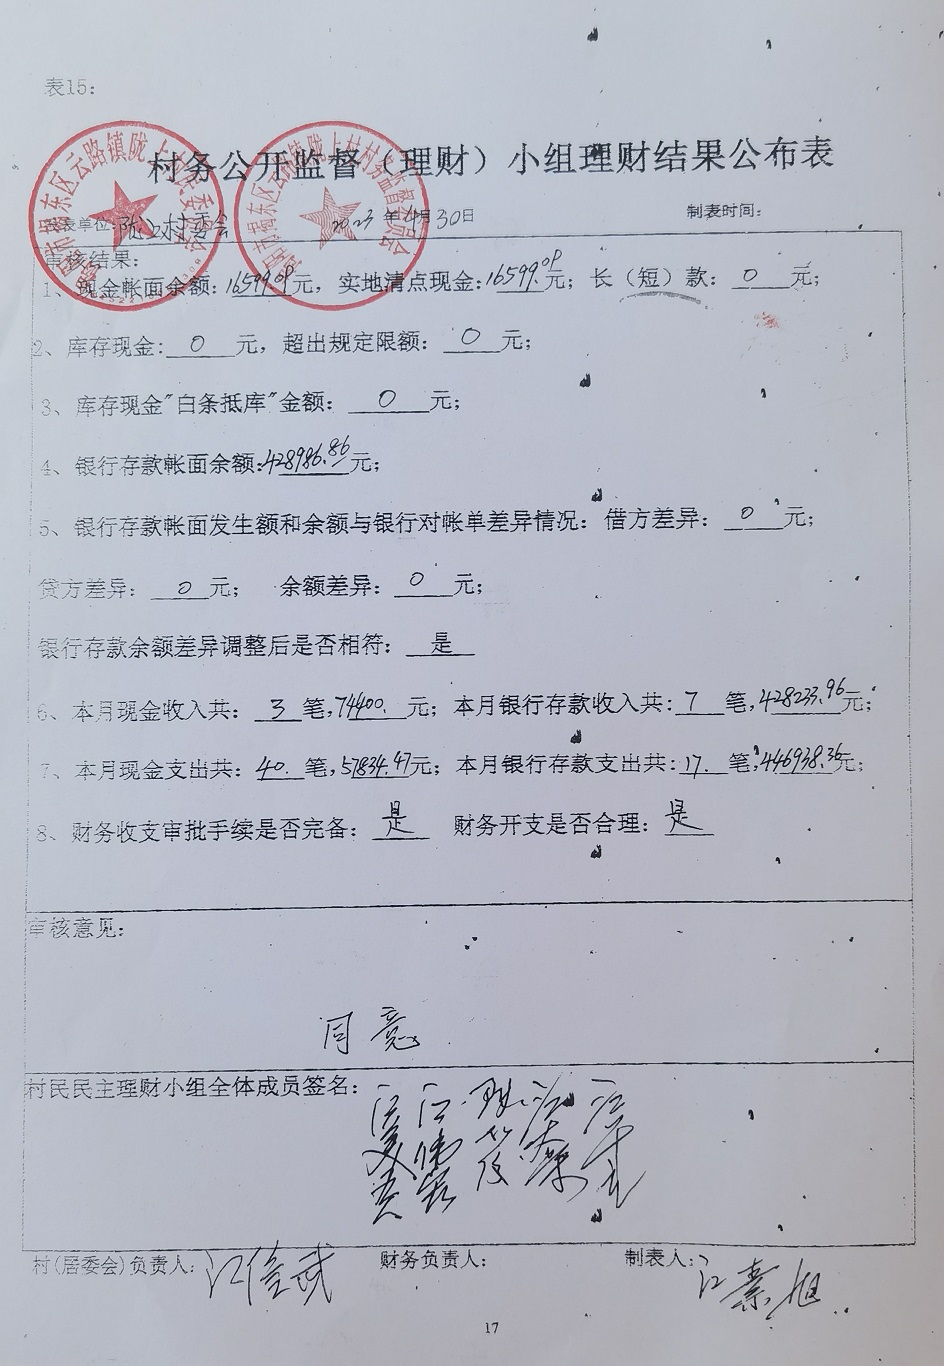 表15：
村务公开监督（理财）小组理财结果公布表
制表单位：陇上村委会 2023年4月30日 制表时间：
审核结果：
1、现金帐面余额：16599.09元，实地清点现金：16599.09元；长（短）款：0元；
2、库存现金：0元，超出规定限额：0元；
3、库存现金"白条抵库"金额：0元；
4、银行存款帐面余额：428986.86元；
5、银行存款帐面发生额和余额与银行对帐单差异情况：借方差异：0元；
贷方差异：0元；余额差异：0元；
银行存款余额差异调整后是否相符：是
6、本月现金收入共：3笔，74400.元；本月银行存款收入共：7笔，428233.96元；
7、本月现金支出共：40.笔，57834.47元；本月银行存款支出共：17.笔，446938.36元；
8、财务收支审批手续是否完备：是 财务开支是否合理：是
审核意见：
同意
村民民主理财小组全体成员签名：
村(居委会)负责人： 财务负责人： 制表人：
17